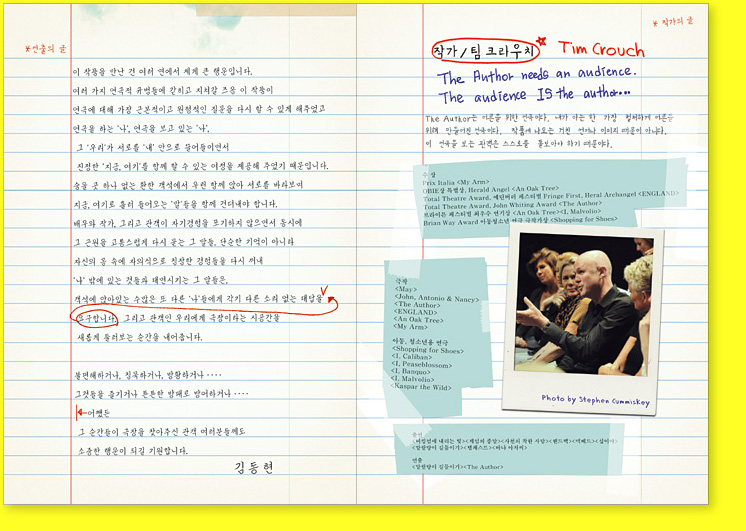 *연출의 글
이 작품을 만난 건 여러 면에서 제게 큰 행운입니다.
여러 가지 연극적 규범들에 갇히고 지쳐갈 즈음 이 작품이
연극에 대해 가장 근본적이고 원형적인 질문을 다시 할 수 있게 해주었고
연극을 하는 '나', 연극을 보고 있는 '나',
그 '우리'가 서로를 '내' 안으로 끌어들이면서
진정한 '지금, 여기'를 함께 할 수 있는 여정을 제공해 주었기 때문입니다.
숨을 곳 하나 없는 환한 객석에서 우린 함께 앉아 서로를 바라보며
지금, 여기로 흘러 들어오는 '말'들을 함께 건너내야 합니다.
배우와 작가, 그리고 관객이 자기경험을 포기하지 않으면서 동시에
그 근원을 고통스럽게 다시 묻는 그 말들, 단순한 기억이 아니라
자신의 몸 속에 자의식으로 침잠한 경험들을 다시 꺼내
'나' 밖에 있는 것들과 대면시키는 그 말들은,
객석에 앉아있는 수많은 또 다른 '나'들에게 각기 다른 소리 없는 대답을
요구합니다. 그리고 관객인 우리에게 극장이라는 시공간을
새롭게 둘러보는 순간을 내어줍니다.
불편해하거나, 침묵하거나, 방황하거나....
그것들을 즐기거나 튼튼한 방패로 방어하거나....
어쨌든
그 순간들이 극장을 찾아주신 관객 여러분들께도
소중한 행운이 되길 기원합니다.
김동현
* 작가의 글
작가/팀 크라우치 Tim Crouch
The Author needs an audience.
The audience IS the author...
The Author는 어른을 위한 연극이다. 내가 아는 한 가장 철저하게 어른을
위해 만들어진 연극이다. 작품에 나오는 거친 언어나 이미지 때문이 아니다.
이 연극을 보는 관객은 스스로를 돌보아야 하기 때문이다.
수상
Prix Italia <My Arm>
OBIE상 특별상, Herald Angel <An Oak Tree>
Total Theatre Award, 에딘버러 페스티벌 Fringe First, Heral Archangel <ENGLAND>
Total Theatre Award, John Whiting Award <The Author>
브라이튼 페스티벌 최우수 연기상 <An Oak Tree><I, Malvolio>
Brian Way Award 아동청소년 연극 극작가상 <Shopping for Shoes>
극작
<May>
<John, Antonio & Nancy>
<The Author>
<ENGLAND>
<An Oak Tree>
<My Arm>
아동, 청소년용 연극
<Shopping for Shoes>
<I, Caliban>
<I, Peaseblossom>
<I, Banquo>
<I, Malvolio>
<Kaspar the Wild>
Photo by Stephen Cummiskey
연출
<The Author>